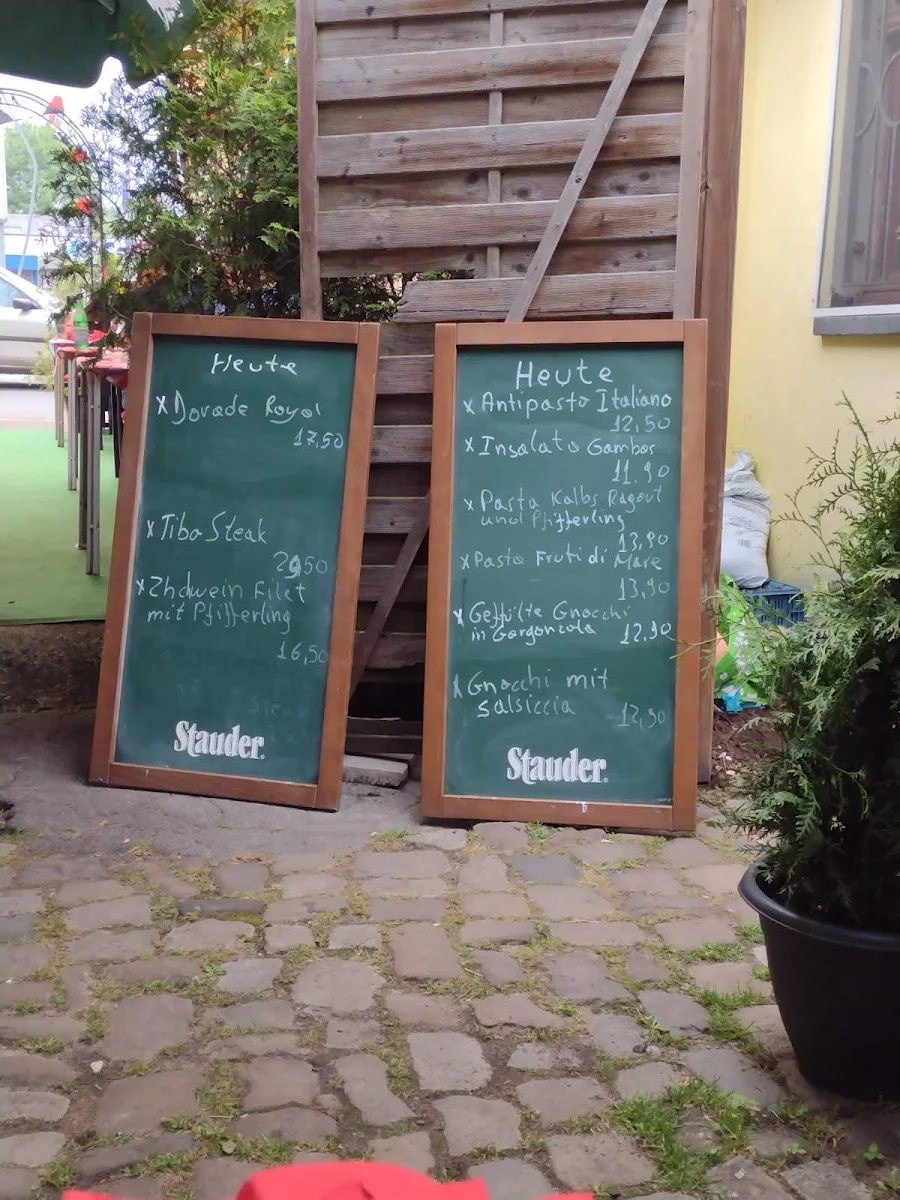 Heute
x Dorade Royal
17,50
x Tibo Steak
29,50
x Zhdwein Filet
mit Pfifferling
16,50
Stauder
Heute
x Antipasto Italiano
12,50
x Insalato Gambos
11.90
x Pasta Kalbs Ragout
und Pfifferling
13,90
x Pasta Fruti di Mare
13,90
x Gefülte Gnocchi
in Gorgonzola 12.90
x Gnocchi mit
Salsiccia
12,90
Stauder